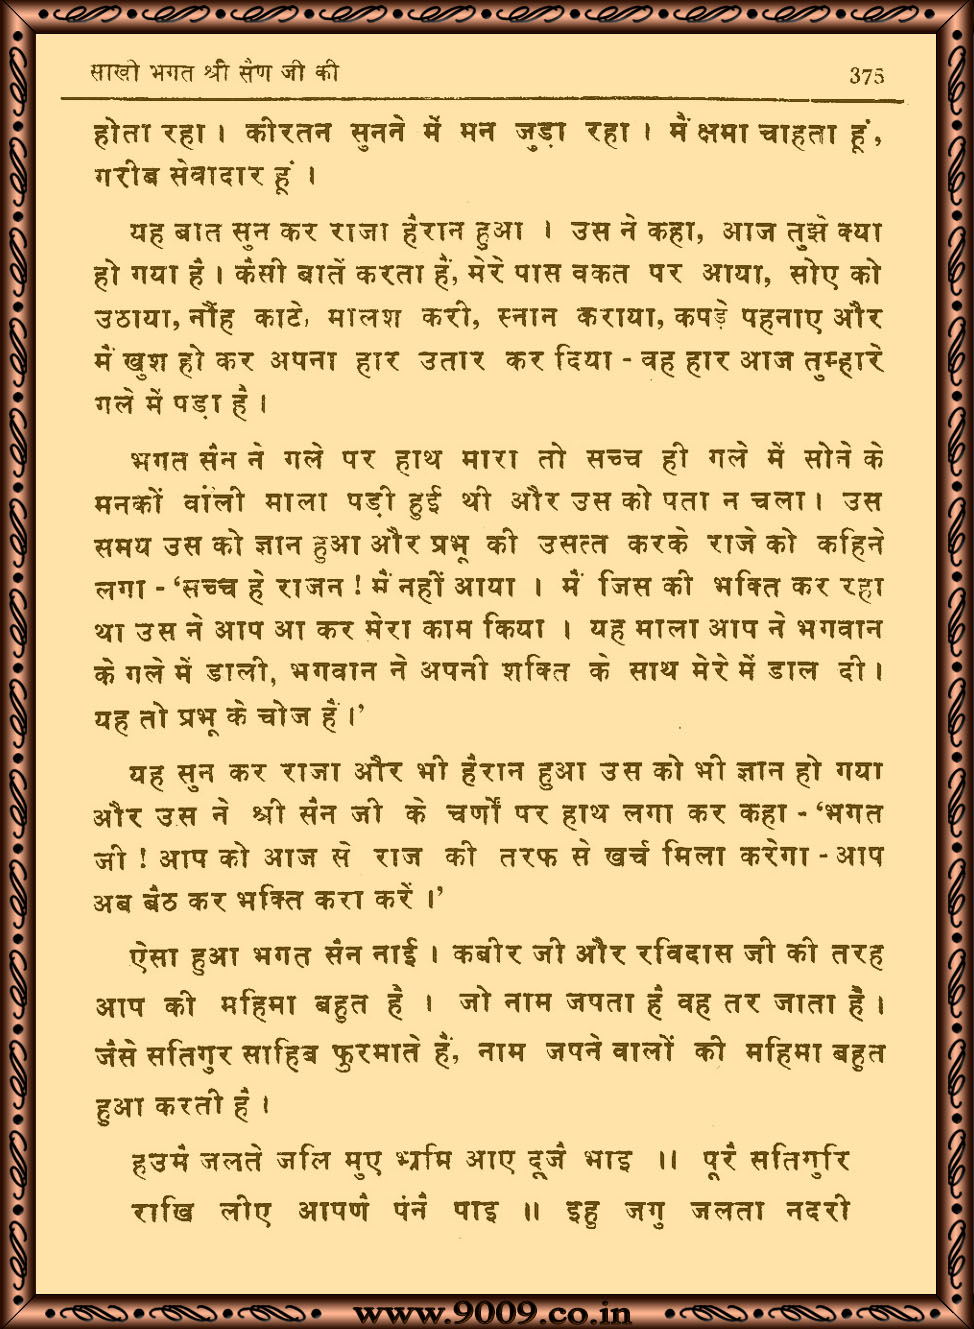 साखी भगत श्री सैण जी की 375
होता रहा। कीरतन सुनने में मन जुड़ा रहा। मैं क्षमा चाहता हूं,
गरीब सेवादार हूं ।
यह बात सुन कर राजा हैरान हुआ । उस ने कहा, आज तुझे क्या
हो गया है। कैसी बातें करता हैं, मेरे पास वकत पर आया, सोए को
उठाया, नौंह काटे, मालश करी, स्नान कराया, कपड़े पहनाए और
मैं खुश हो कर अपना हार उतार कर दिया - वह हार आज तुम्हारे
गले में पड़ा है ।
भगत सैन ने गले पर हाथ मारा तो सच्च ही गले में सोने के
मनकों वांली माला पड़ी हुई थी और उस को पता न चला। उस
समय उस को ज्ञान हुआ और प्रभू की उसत्त करके राजे को कहिने
लगा - ‘सच्च हे राजन ! मैं नहीं आया । मैं जिस की भक्ति कर रहा
था उस ने आप आ कर मेरा काम किया । यह माला आप ने भगवान
के गले में डाली, भगवान ने अपनी शक्ति के साथ मेरे में डाल दी।
यह तो प्रभू के चोज हैं।’
यह सुन कर राजा और भी हैरान हुआ उस को भी ज्ञान हो गया
और उस ने श्री सैन जी के चर्णों पर हाथ लगा कर कहा - ‘भगत
जी ! आप को आज से राज की तरफ से खर्च मिला करेगा - आप
अब बैठ कर भक्ति करा करें।’
ऐसा हुआ भगत सैन नाई । कबीर जी और रविदास जी की तरह
आप की महिमा बहुत है । जो नाम जपता है वह तर जाता है।
जैसे सतिगुर साहिब फुरमाते हैं, नाम जपने वालों की महिमा बहुत
हुआ करती है ।
हउमै जलते जलि मुए भ्रमि आए दूजै भाइ ॥ पूरै सतिगुरि
राखि लीए आपणै पंनै पाइ ॥ इहु जगु जलता नदरी
www.9009.co.in